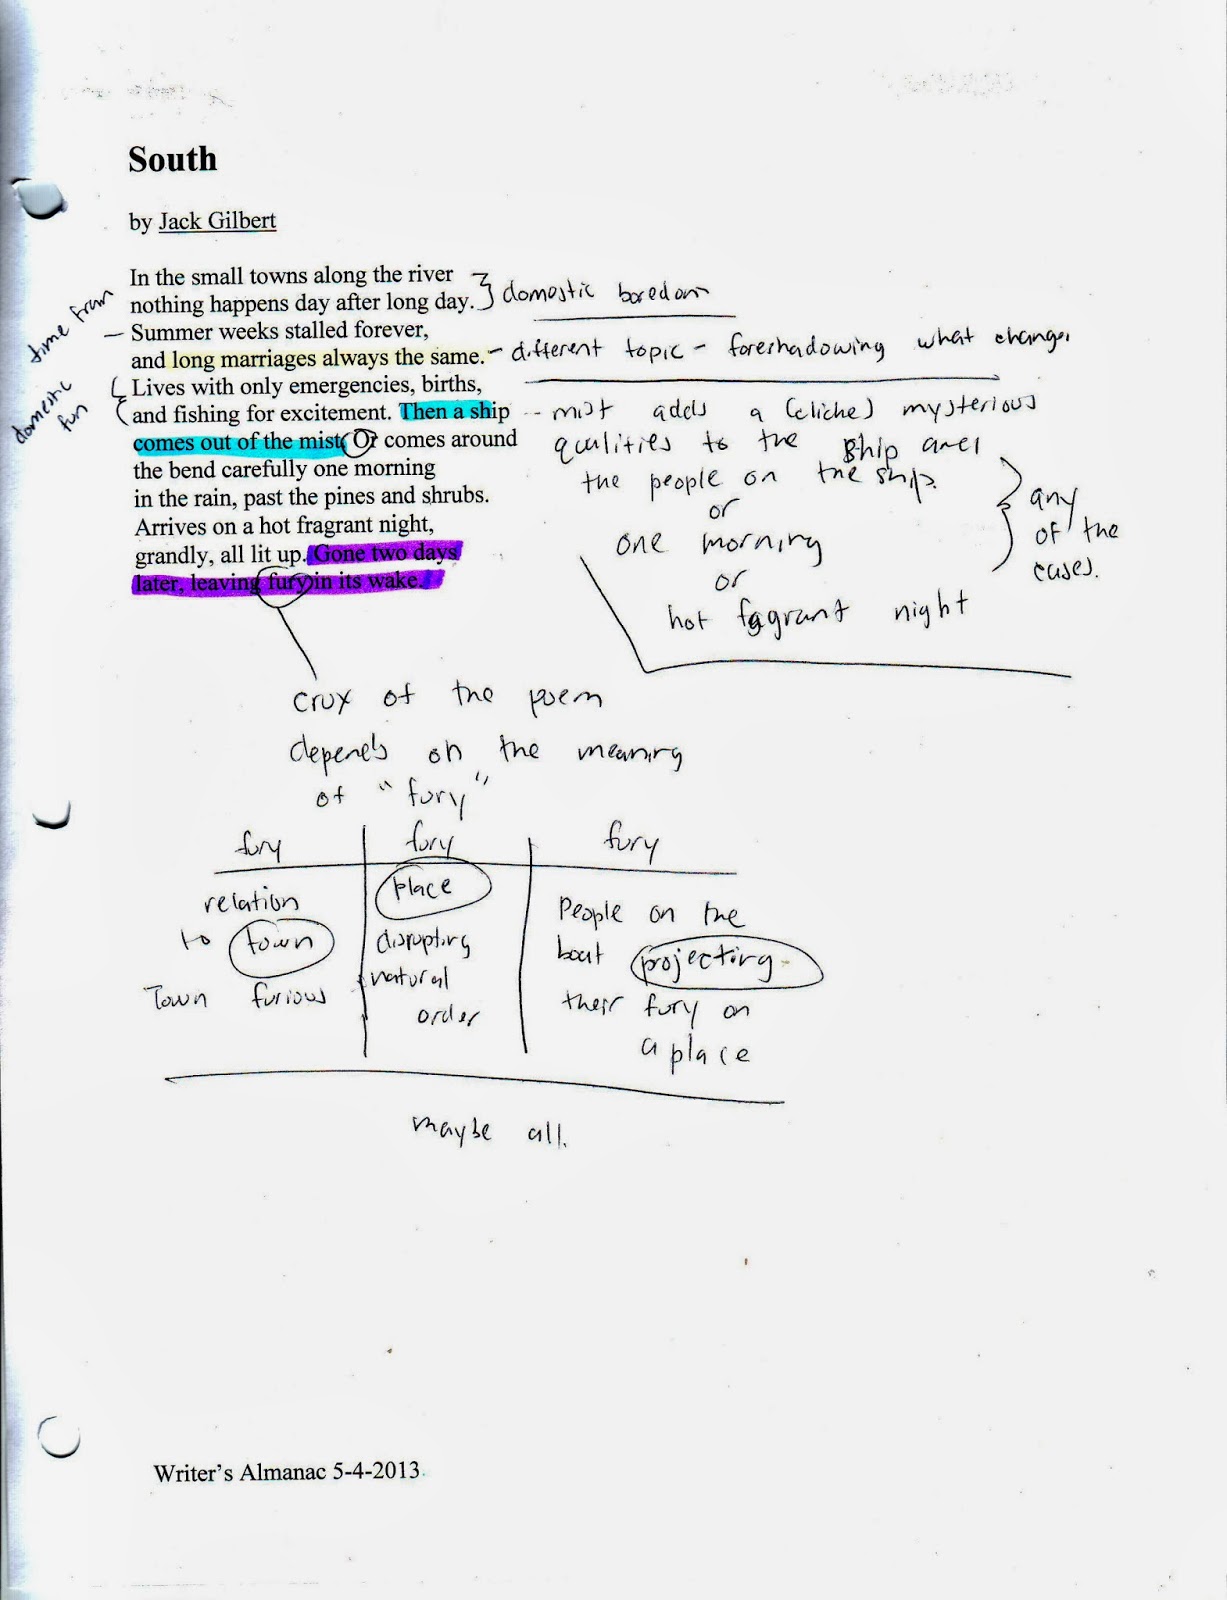 South
by Jack Gilbert
In the small towns along the river
nothing happens day after long day.
Summer weeks stalled forever,
and long marriages always the same.
Lives with only emergencies, births,
and fishing for excitement. Then a ship
comes out of the mist. Or comes around
the bend carefully one morning
in the rain, past the pines and shrubs.
Arrives on a hot fragrant night,
grandly, all lit up. Gone two days
later, leaving fury in its wake.
time
domestic
fun
domestic boredom
different topic - foreshadowing what changes
mist adds a (cliche) mysterious
qualities to the ship and
the people on the ship.
or
one morning
or
hot fragrant night
any
of the
cases.
crux of the poem
depends on the meaning
of "fury"
fury fury fury
relation
to town
Town furious
place
disrupting
natural
order
People on the
boat projecting
their fury on
a place
maybe all.
Writer's Almanac 5-4-2013